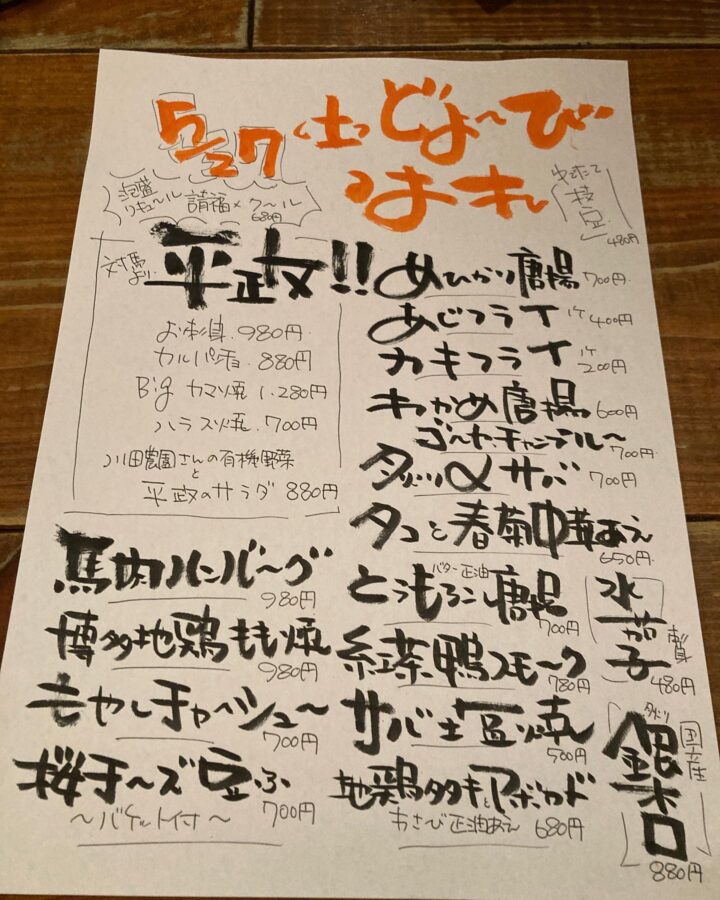 5/27 (土) どよ〜び
はれ
泡盛
リキュール 請福×クール
680円
ゆでたて
枝豆
480円
対馬
より 平政!!
お刺身 980円
カルパッチョ 880円
Big カマ焼 1.280円
ハラス焼 700円
川田農園さんの有機野菜
と
平政のサラダ 880円
馬肉ハンバーグ
980円
博多地鶏もも焼
980円
もやしチャーシュー
700円
桜チーズ豆ふ
〜バケット付〜 700円
めひかり唐揚 700円
あじフライ 1ケ 400円
カキフライ 1ケ 200円
わかめ唐揚 600円
ゴーヤーチャンプルー
700円
サバ 700円
タコと春菊中華あえ
650円
バター正油
とうもろこし唐揚
700円
紅茶鴨スモーク
780円
サバ土豆焼
500円
地鶏タタキとアボカド
わさび正油あえ 680円
水茄子
刺身
480円
国産
銀杏
880円